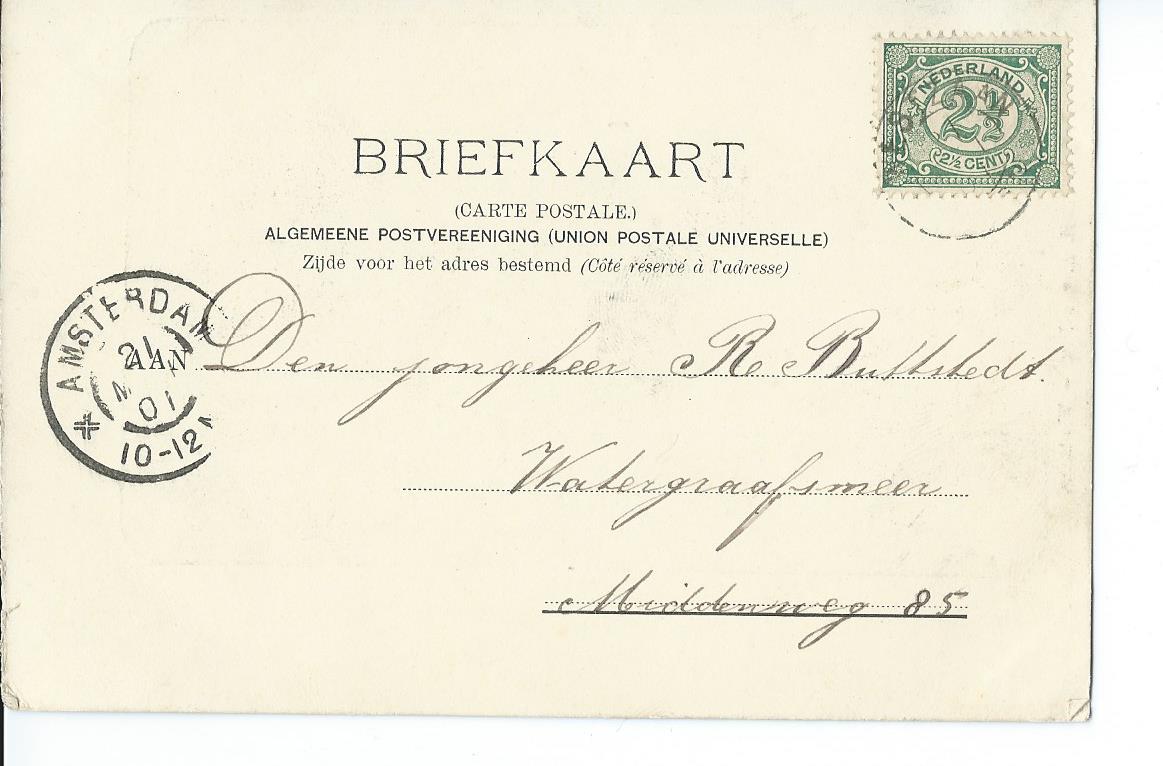 NEDERLAND
2½
2½ CENT
BRIEFKAART
(CARTE POSTALE.)
ALGEMEENE POSTVEREENIGING (UNION POSTALE UNIVERSELLE)
Zijde voor het adres bestemd (Côté réservé à l'adresse)
AMSTERDAM
21
01
10-12
AAN Den jongeheer R Buttstedt.
Watergraafsmeer
Middenweg 85